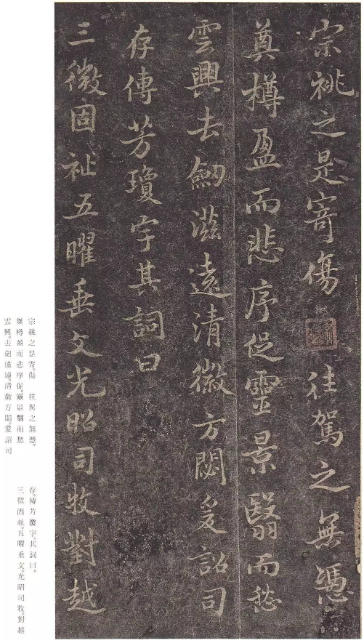 宗祧之是寄傷往駕之無憑
奠樽盈而悲序促靈景翳而愁
雲興去劒滋遠清徽方閟爰詔司
存傳芳瓊字其詞曰
三微固祉五曜垂文光昭司牧對越
宗祧之是寄，傷　往駕之無憑，
奠樽盈而悲序促，靈景翳而愁
雲興，去劒滋遠，清徽方閟，爰詔司
存，傳芳瓊字，其詞曰，
三微固祉，五曜垂文，光昭司牧，對越